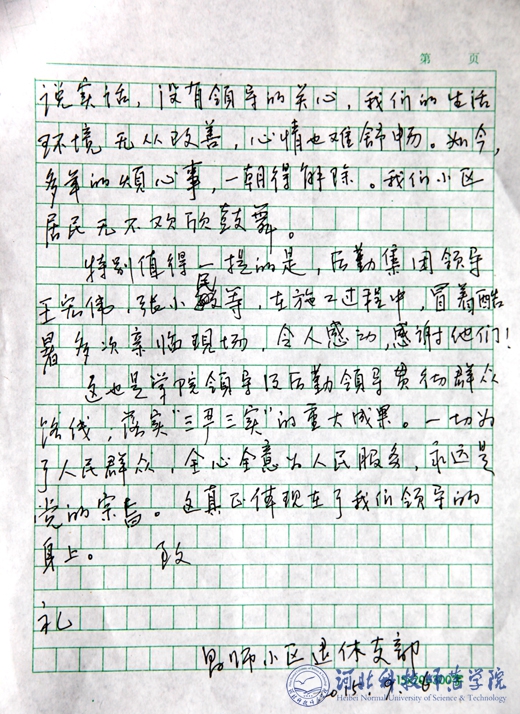 第 页
说实话，没有领导的关心，我们的生活
环境无从改善，心情也难舒畅。如今，
多年的烦心事，一朝得解除。我们小区
居民无不欢欣鼓舞。
特别值得一提的是，后勤集团领导
王宏伟，张小民等，在施工过程中，冒着酷
暑多次亲临现场，令人感动，感谢他们！
这也是学院领导及后勤领导贯彻群众
路线，落实“三严三实”的重大成果。一切为
了人民群众，全心全意为人民服务，永远是
党的宗旨。这真正体现在了我们领导的
身上。 致
礼
昌师小区退休支部
2015.9.6
河北科技师范学院
Hebei Normal University of Science & Technology